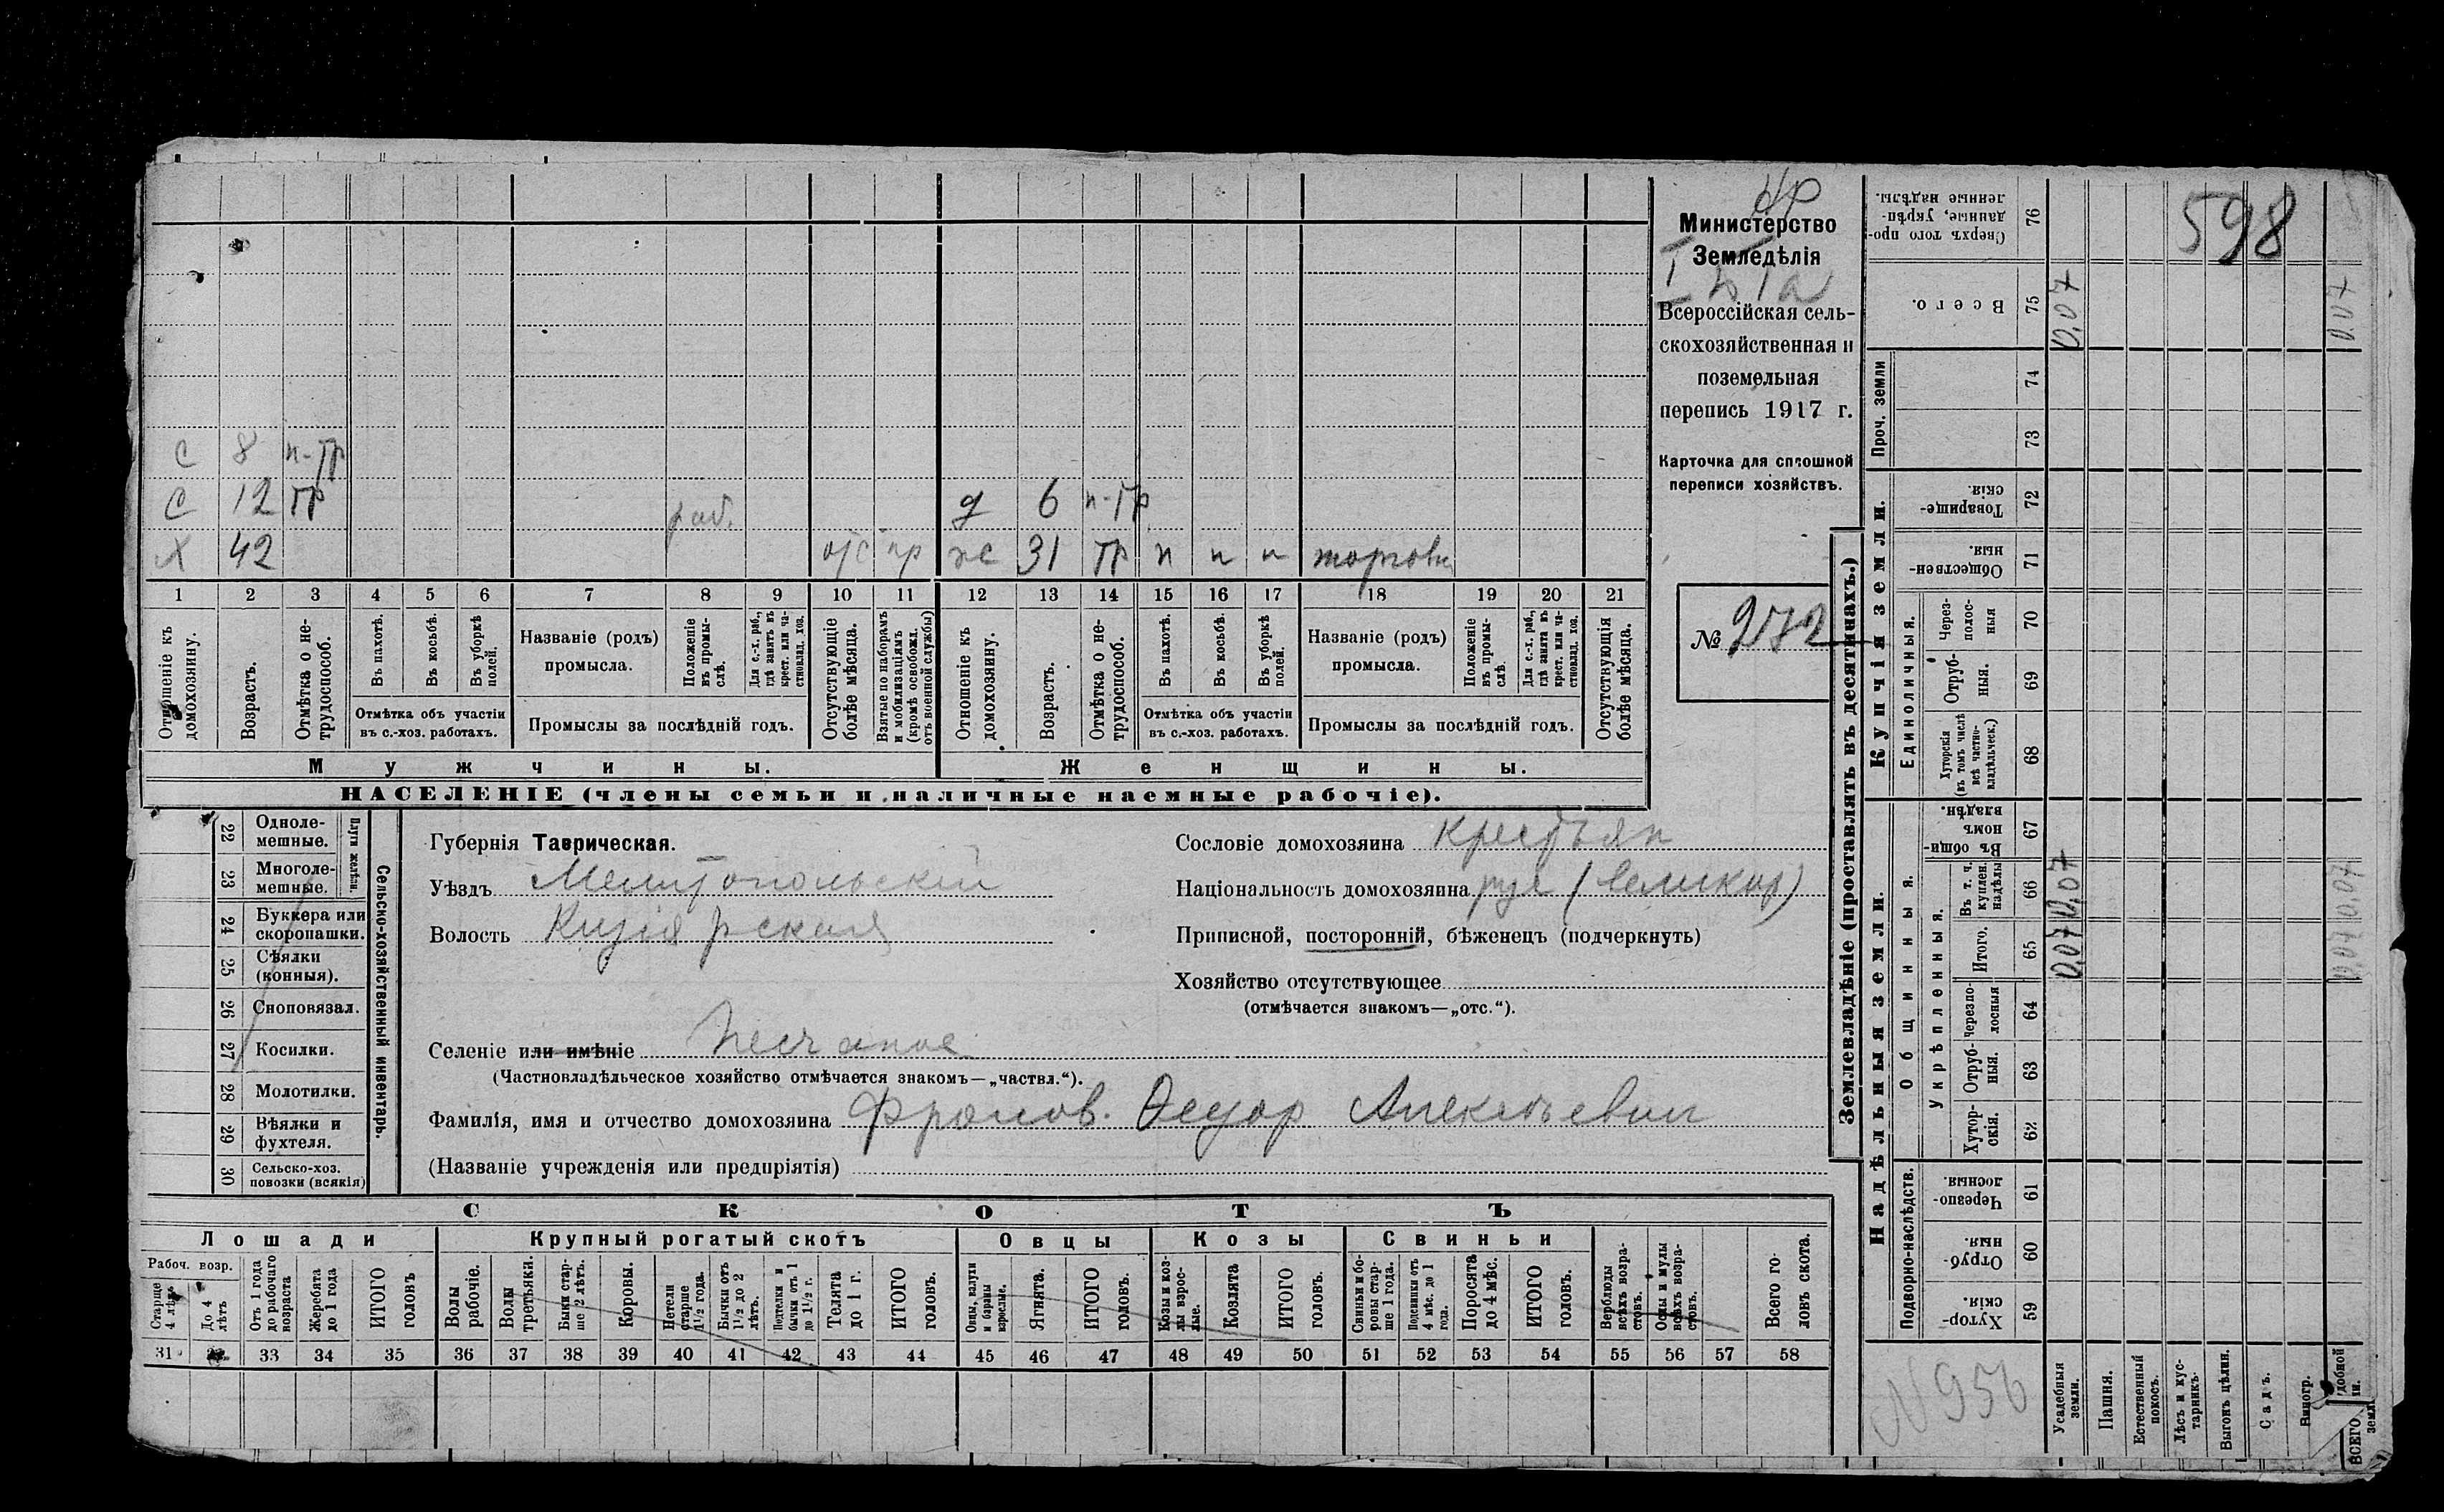 Нр
Министерство
Земледѣлія
Всероссійская сель-
скохозяйственная и
поземельная
перепись 1917 г.
Карточка для сплошной
переписи хозяйствъ.
№ 272
С 8 п-тр
С 12 тр раб. д 6 п-тр
Х 42 отс пр ж 31 тр п п п торговл
1 2 3 4 5 6 7 8 9 10 11 12 13 14 15 16 17 18 19 20 21
Отношеніе къ домохозяину.
Возрастъ.
Отмѣтка о не-трудоспособ.
Въ пахотѣ.
Въ косьбѣ.
Въ уборкѣ полей.
Отмѣтка объ участіи
въ с.-хоз. работахъ.
Названіе (родъ)
промысла.
Положеніе въ промы-слѣ.
Для с.-х. раб., гдѣ занятъ въ крест. или ча-стновлад. хоз.
Промыслы за послѣдній годъ.
Отсутствующіе болѣе мѣсяца.
Взятые по наборамъ и мобилизаціямъ (кромѣ освобожд. отъ военной службы)
Отношеніе къ домохозяину.
Возрастъ.
Отмѣтка о не-трудоспособ.
Въ пахотѣ.
Въ косьбѣ.
Въ уборкѣ полей.
Отмѣтка объ участіи
въ с.-хоз. работахъ.
Названіе (родъ)
промысла.
Положеніе въ промы-слѣ.
Для с.-х. раб., гдѣ занята въ крест. или ча-стновлад. хоз.
Промыслы за послѣдній годъ.
Отсутствующія болѣе мѣсяца.
Мужчины.
Женщины.
НАСЕЛЕНІЕ (члены семьи и наличные наемные рабочіе).
22 Одноле-мешные.
23 Многоле-мешные.
Плуги желѣзн.
24 Буккера или скоропашки.
25 Сѣялки (конныя).
26 Сноповязал.
27 Косилки.
28 Молотилки.
29 Вѣялки и фухтеля.
30 Сельско-хоз. повозки (всякія)
Сельско-хозяйственный инвентарь.
Губернія Таврическая.
Уѣздъ Мелитопольскій
Волость Кизіярская
Селеніе или имѣніе Песчаное
(Частновладѣльческое хозяйство отмѣчается знакомъ—„частвл.“).
Фамилія, имя и отчество домохозяина Фролов. Ѳедор Алексѣевич
(Названіе учрежденія или предпріятія)
Сословіе домохозяина крестьян
Національность домохозяина рус (великор)
Приписной, посторонній, бѣженецъ (подчеркнуть)
Хозяйство отсутствующее
(отмѣчается знакомъ—„отс.“).
СКОТЪ
Лошади
Рабоч. возр.
Старше 4 лѣтъ
До 4 лѣтъ
Отъ 1 года до рабочаго возраста
Жеребята до 1 года
ИТОГО головъ
Крупный рогатый скотъ
Волы рабочіе.
Волы третьяки.
Быки стар-ше 2 лѣтъ.
Коровы.
Нетели старше 1½ года.
Бычки отъ 1½ до 2 лѣтъ.
Подтелки и бычки отъ 1 до 1½ г.
Телята до 1 г.
ИТОГО головъ.
Овцы
Овцы, валухи и бараны взрослые.
Ягнята.
ИТОГО головъ.
Козы
Козы и коз-лы взрос-лые.
Козлята
ИТОГО головъ.
Свиньи
Свиньи и бо-ровы стар-ше 1 года.
Подсвинки отъ 4 мѣс. до 1 года.
Поросята до 4 мѣс.
ИТОГО головъ.
Верблюды всѣхъ возра-стовъ.
Ослы и мулы всѣхъ возра-стовъ.
Всего го-ловъ скота.
31 33 34 35 36 37 38 39 40 41 42 43 44 45 46 47 48 49 50 51 52 53 54 55 56 57 58
Землевладѣніе (проставлять въ десятинахъ.)
Надѣльныя земли.
Купчія земли.
Проч. земли
Подворно-наслѣдств.
Общинныя.
Укрѣпленныя.
Единоличныя.
Хутор-скія. 59
Отруб-ныя. 60
Черезпо-лосныя. 61
Хутор-скія. 62
Отруб-ныя. 63
Черезпо-лосныя 64
Итого. 65
Въ т. ч. куплен. надѣлы 66
Въ общин-номъ владѣн. 67
Хуторскія (въ томъ числѣ всѣ частно-владѣльческ.) 68
Отруб-ныя. 69
Через-полос-ныя 70
Обществен-ныя. 71
Товарище-скія. 72
73
74
Всего. 75
Сверхъ того про-данные, укрѣп-ленные надѣлы. 76
Усадебныя земли. 0,07 0,07 0,07
Пашня.
Естественный покосъ.
Лѣсъ и кус-тарникъ.
Выгонъ цѣлин.
Садъ.
Виногр.
ВСЕГО удобной земли. 0,07 0,07 0,07
598
N 956